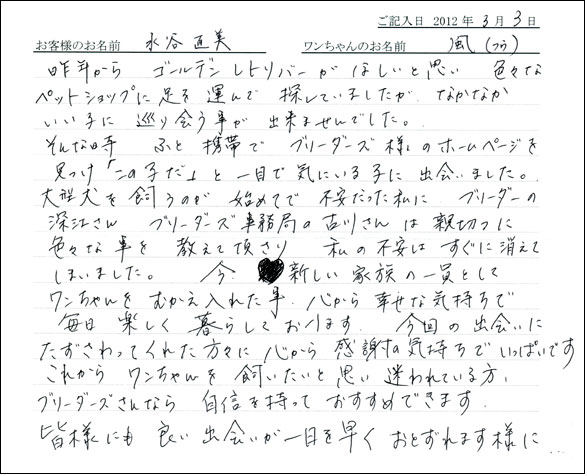 ご記入日 2012年 3月 3日
お客様のお名前 水谷直美 ワンちゃんのお名前 風(ふう)
昨年から ゴールデンレトリバーが ほしいと思い 色々な
ペットショップに足を運んで 探していましたが、なかなか
いい子に 巡り会う事が 出来ませんでした。
そんな時 ふと携帯で ブリーダーズ様のホームページを
見つけ「この子だ」と一目で気にいる子に出会いました。
大型犬を飼うのが 始めてで 不安だった私に ブリーダーの
深江さん ブリーダーズ事務局の古川さんは 親切に
色々な事を 教えて頂さり 私の不安は すぐに消えて
しまいました。 今 新しい家族の一員として
ワンちゃんを むかえ入れた事、心から 幸せな気持ちで
毎日 楽しく 暮らしております。 今回の出会いに
たずさわってくれた方々に 心から 感謝の気持ちで いっぱいです
これから ワンちゃんを 飼いたいと思い 迷われている方、
ブリーダーズさんなら 自信を持って おすすめできます。
皆様にも 良い 出会いが一日を早く おとずれます様に…